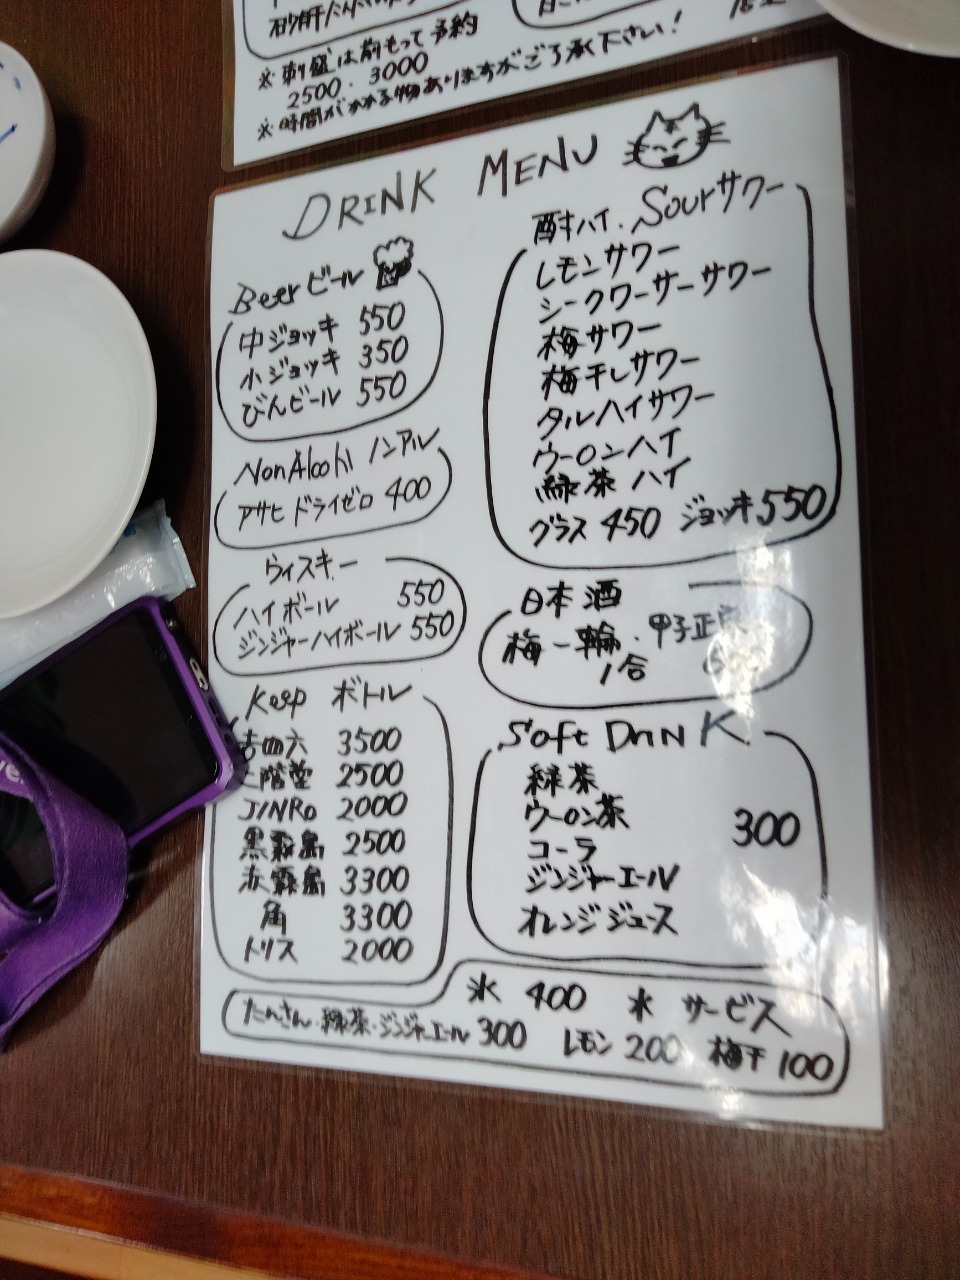 ※刺盛は前もって予約
2500. 3000
※時間がかかる物ありますがご了承下さい!
DRINK MENU
Beerビール
中ジョッキ 550
小ジョッキ 350
びんビール 550
NonAlcohl ノンアル
アサヒ ドライゼロ 400
ウィスキー
ハイボール 550
ジンジャーハイボール 550
Keep ボトル
吉四六 3500
二階堂 2500
JINRO 2000
黒霧島 2500
赤霧島 3300
角 3300
トリス 2000
酎ハイ. Sourサワー
レモンサワー
シークワーサーサワー
梅サワー
梅干しサワー
タルハイサワー
ウーロンハイ
緑茶ハイ
グラス 450 ジョッキ550
日本酒
梅一輪・甲子正宗
1合
Soft DrINK
緑茶
ウーロン茶
300
コーラ
ジンジャーエール
オレンジジュース
氷 400 水 サービス
たんさん・緑茶・ジンジャーエール 300 レモン 200 梅干 100